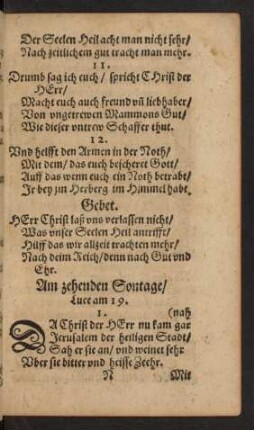 Der Seelen Heil acht man nicht sehr/
Nach zeitlichem gut tracht man mehr.
11.
Drumb sag ich euch/ spricht CHrist der
HErr/
Macht euch auch freund vñ liebhaber/
Von vngetrewen Mammons Gut/
Wie dieser vntrew Schaffer thut.
12.
Vnd helfft den Armen in der Noth/
Mit dem/ das euch bescheret Gott/
Auff das wenn euch ein Noth betrabt/
Jr bey jm Herberg im Himmel habt
Gebet.
HErr Christ laß vns verlassen nicht/
Was vnser Seelen Heil antrifft/
Hilff das wir allzeit trachten mehr/
Nach deim Reich/ denn nach Gut vnd
Ehr.
Am zehenden Sontage/
Luce am 19.
1. (nah
DA Christ der HErr nu kam gar
Jerusalem der heiligen Stadt/
Sah er sie an/ vnd weinet sehr
Vber sie bitter vnd heisse Zeehr.
N Mit